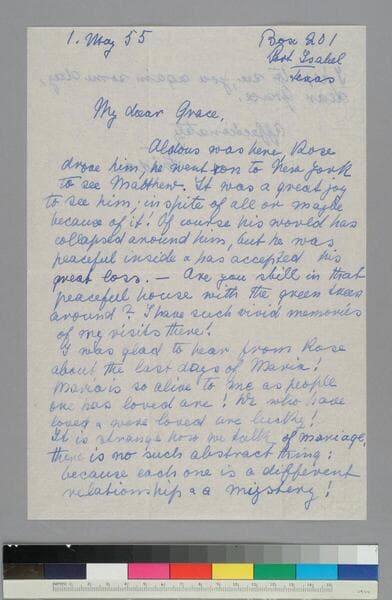 1. May 55
Box 201
Port Isabel
Texas
My dear Grace,
Aldous was here, Rose
drove him, he went on to New York
to see Matthew. It was a great joy
to see him; inspite of all or maybe
because of it! Of course his world has
collapsed around him, but he was
peaceful inside & has accepted his
great loss. — Are you still in that
peaceful house with the green trees
around? I have such vivid memories
of my visits there!
I was glad to hear from Rose
about the last days of Maria!
Maria is so alive to me as people
one has loved are! We who have
loved & were loved are lucky!
It is strange how we talk of mariage,
there is no such abstract thing:
because each one is a different
relationship & a mystery!